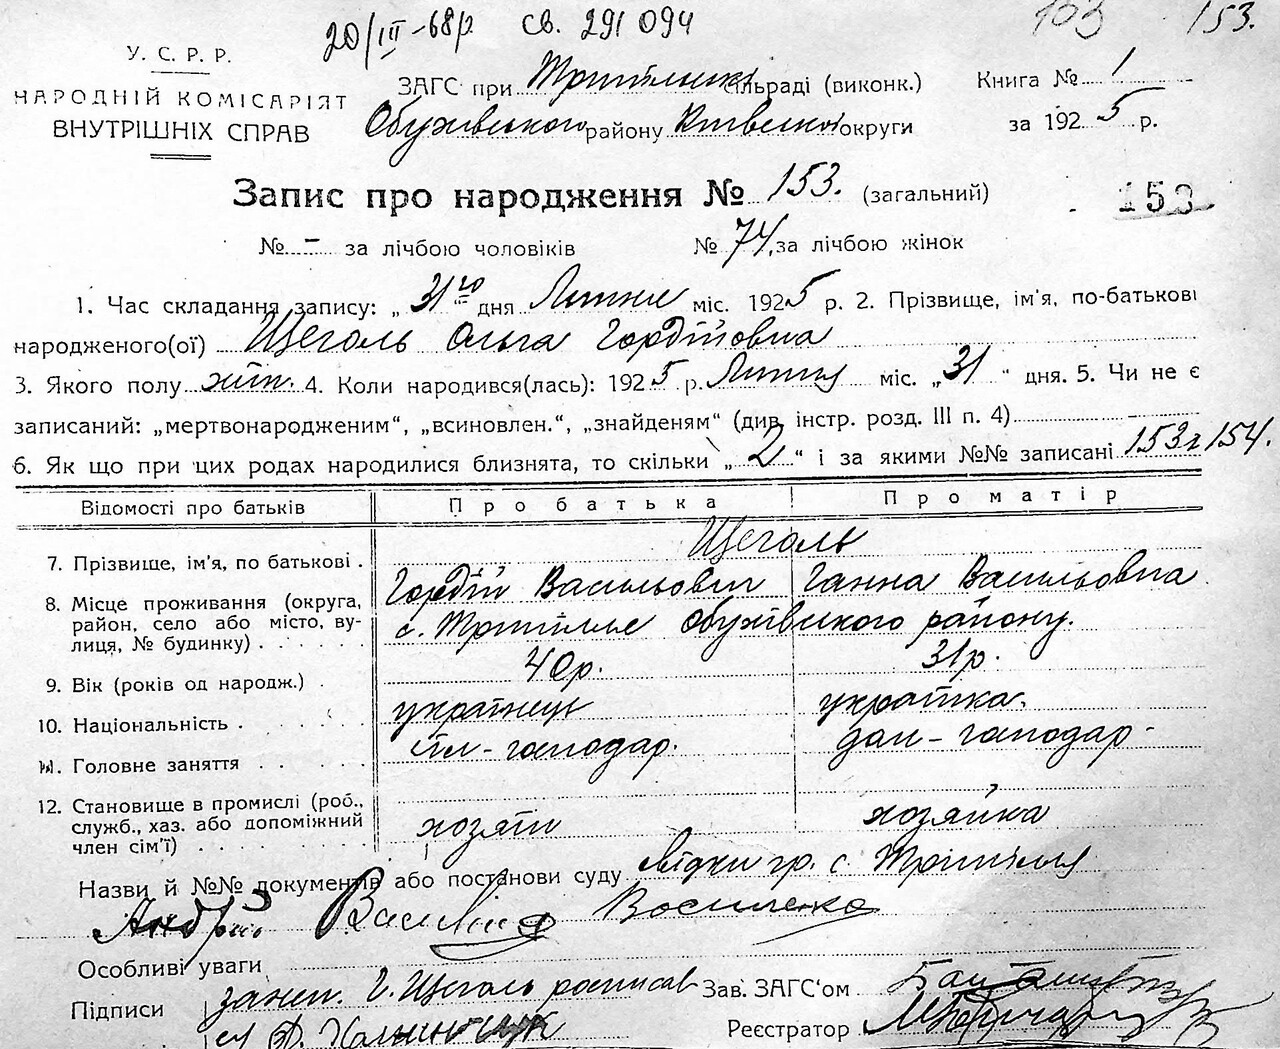 20/III-68р. св. 291 094
153 153.
У. С. Р. Р.
НАРОДНІЙ КОМІСАРІЯТ
ВНУТРІШНІХ СПРАВ
ЗАГС при Трипільській сільраді (виконк.)
Обухівського району Київської округи
Книга № 1
за 1925 р.
Запис про народження № 153. (загальний)
153
№ – за лічбою чоловіків № 74, за лічбою жінок
1. Час складання запису: „31го" дня Липня міс. 1925 р. 2. Прізвище, ім'я, по-батькові
народженого(ої) Щеголь Ольга Гордіївна
3. Якого полу жін. 4. Коли народився(лась): 1925 р. Липня міс. „31" дня. 5. Чи не є
записаний: „мертвонародженим“, „всиновлен.“, „знайденям“ (див. інстр. розд. III п. 4)
6. Як що при цих родах народилися близнята, то скільки „2“ і за якими №№ записані 153 і 154.
Відомості про батьків Про батька Про матір
Щеголь
7. Прізвище, ім'я, по батькові . Гордій Васильович Ганна Васильовна
8. Місце проживання (округа, район, село або місто, вулиця, № будинку) с. Трипілля Обухівського району.
9. Вік (років од народж.) . 40р. 31р.
10. Національність . українець українка.
11. Головне заняття сіл-господар. дом-господар-
12. Становище в промислі (роб., служб., хаз. або допоміжний член сім'ї) хозяїн хозяйка
Назви й №№ документів або постанови суду свідки гр. с. Трипілля
Андрій Василенко
Особливі уваги
Підписи Г. Щеголь расписав Зав. ЗАГС'ом
Реєстратор